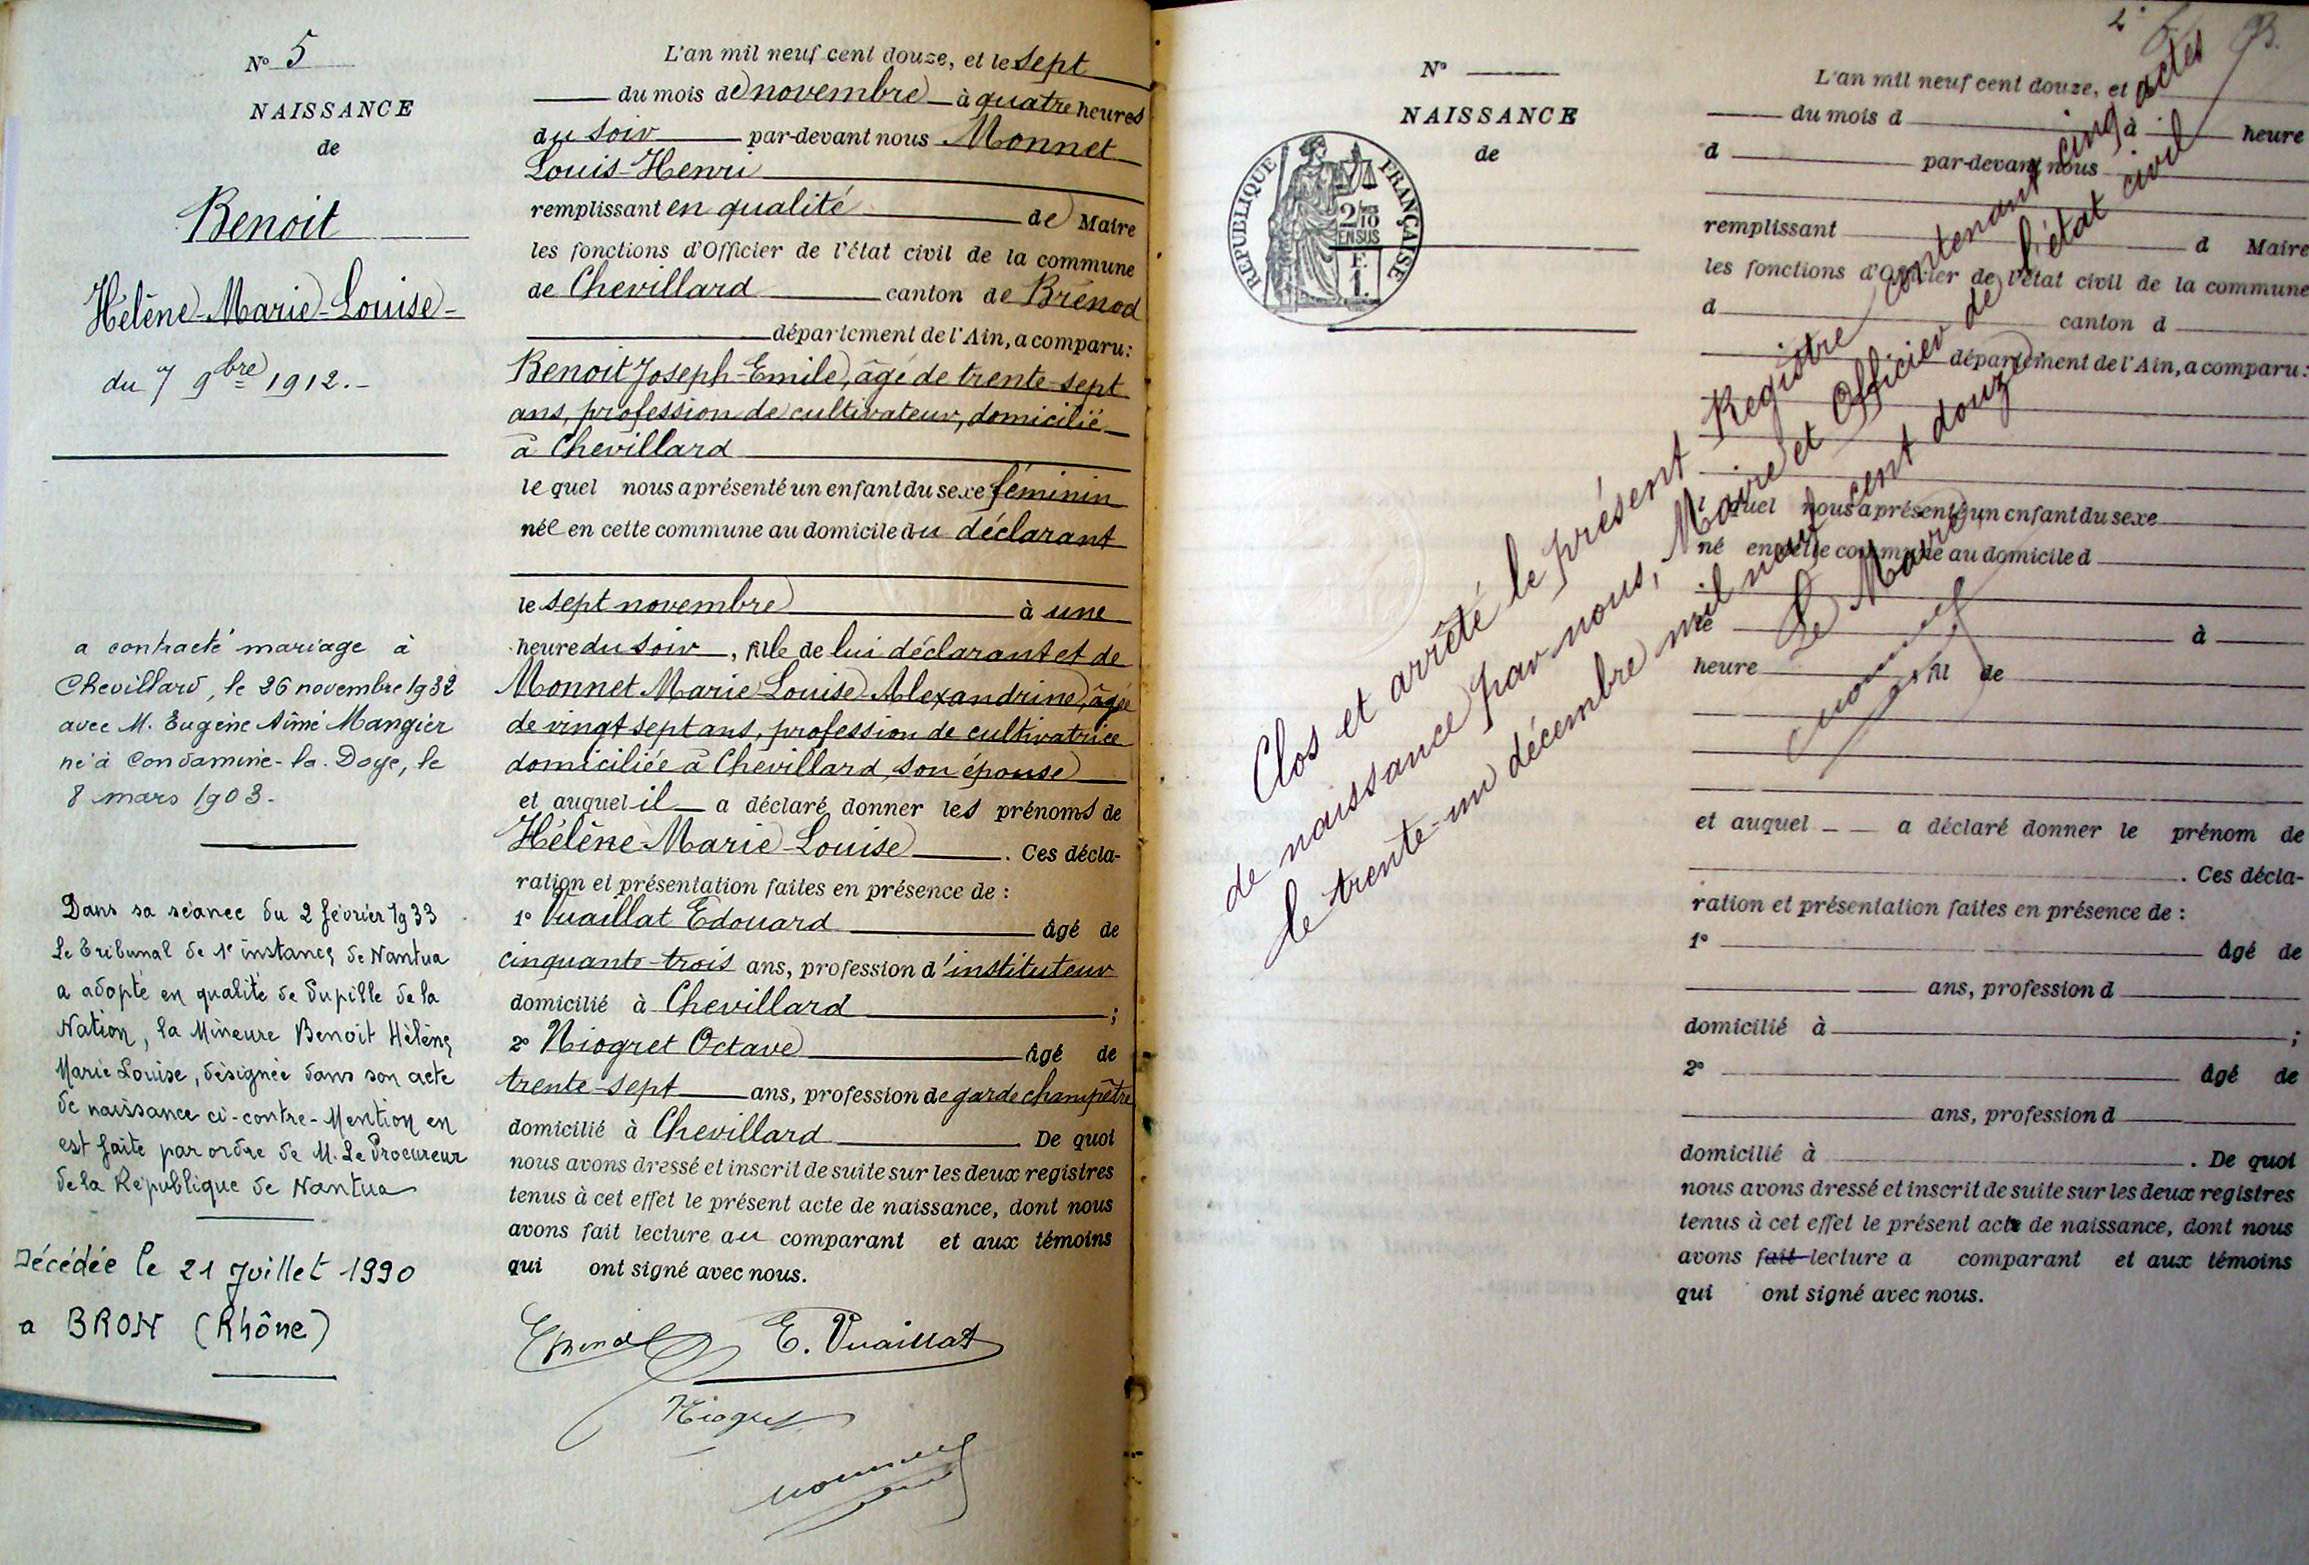 N° 5
NAISSANCE
de
Benoit
Hélène-Marie-Louise-
du 7 9bre 1912.-
a contracté mariage à
Chevillard, le 26 novembre 1932
avec M. Eugène Aimé Mangier
né à Condamine-la-Doye, le
8 mars 1903.
Dans sa séance du 2 février 1933
Le Tribunal de 1e instance de Nantua
a adopté en qualité de Pupille de la
Nation, la Mineure Benoit Hélène
Marie Louise, désignée dans son acte
de naissance ci-contre-Mention en
est faite par ordre de M. Le Procureur
de la République de Nantua
Décédée le 21 Juillet 1990
a BRON (Rhône)
L'an mil neuf cent douze, et le sept
du mois de novembre à quatre heures
du soir par-devant nous Monnet
Louis-Henri
remplissant en qualité de Maire
les fonctions d'Officier de l'état civil de la commune
de Chevillard canton de Brénod
département de l'Ain, a comparu:
Benoit Joseph-Emile, âgé de trente-sept
ans, profession de cultivateur, domicilié
à Chevillard
le quel nous a présenté un enfant du sexe féminin
née en cette commune au domicile du déclarant
le sept novembre à une
heure du soir, fille de lui déclarant et de
Monnet Marie Louise Alexandrine, âgée
de vingt sept ans, profession de cultivatrice
domiciliée à Chevillard, son épouse
et auquel il a déclaré donner les prénoms de
Hélène-Marie-Louise. Ces décla-
ration et présentation faites en présence de :
1° Vuaillat Edouard Agé de
cinquante-trois ans, profession d'instituteur
domicilié à Chevillard ;
2° Niogret Octave Agé de
trente-sept ans, profession de garde champêtre
domicilié à Chevillard. De quoi
nous avons dressé et inscrit de suite sur les deux registres
tenus à cet effet le présent acte de naissance, dont nous
avons fait lecture au comparant et aux témoins
qui ont signé avec nous.
E. Vuaillat
Niogret
Monnet
N°
NAISSANCE
de
REPUBLIQUE FRANÇAISE
2/10
EN SUS
F.
1.
L'an mil neuf cent douze, et
du mois d à heure
d par-devant nous
remplissant d Maire
les fonctions d'Officier de l'état civil de la commune
d canton d
département de l'Ain, a comparu:
quel nous a présenté un enfant du sexe
né en cette commune au domicile d
le à
heure fil de
et auquel a déclaré donner le prénom de
. Ces décla-
ration et présentation faites en présence de :
1° Agé de
ans, profession d
domicilié à ;
2° Agé de
ans, profession d
domicilié à . De quoi
nous avons dressé et inscrit de suite sur les deux registres
tenus à cet effet le présent acte de naissance, dont nous
avons fait lecture a comparant et aux témoins
qui ont signé avec nous.
Clos et arrêté le présent Registre contenant cinq actes
de naissance par nous, Maire et Officier de l'état civil
le trente-un décembre mil neuf cent douze
Le Maire,
Monnet